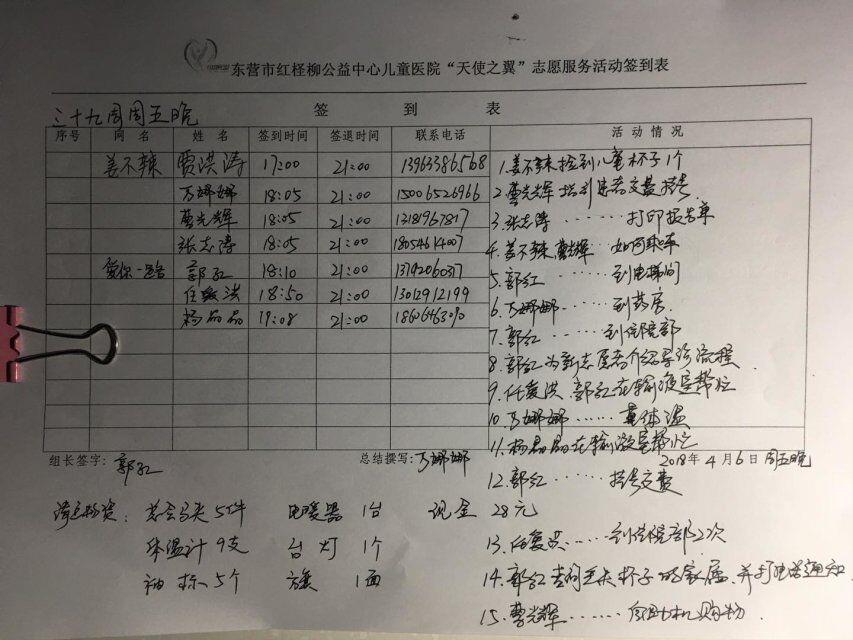 东营市红柽柳公益中心儿童医院“天使之翼”志愿服务活动签到表
三十九周周五晚 签到表
序号 网名 姓名 签到时间 签退时间 联系电话 活动情况
姜不辣 贾洪涛 17:00 21:00 13963386568
万娜娜 18:05 21:00 15006526966
曹光辉 18:05 21:00 13181967817
张志涛 18:05 21:00 18054614007
爱你一路 郭红 18:10 21:00
任爱洪 18:50 21:00 13012912199
杨晶晶 19:08 21:00
1. 姜不辣捡到儿童杯子1个
2. 曹光辉指引患者交费挂号
3. 张志涛……打印报告单
4. 姜不辣 曹光辉 如何乘车
5. 郭红……到电梯间
6. 万娜娜……到药房
7. 郭红……到住院部
8. 郭红为新志愿者介绍导诊流程
9. 任爱洪、郭红在输液室帮忙
10. 万娜娜……量体温
11. 杨晶晶在输液室帮忙
组长签字：郭红 总结撰写：万娜娜 2018年4月6日 周五晚
12. 郭红……挂号交费
志愿马夹5件 电暖器1台 现金28元
体温计9支 台灯1个
袖标5个 旗1面
13. 任爱洪……到住院部2次
14. 郭红查询丢失杯子的家属，并打电话通知
15. 曹光辉……自助机购物